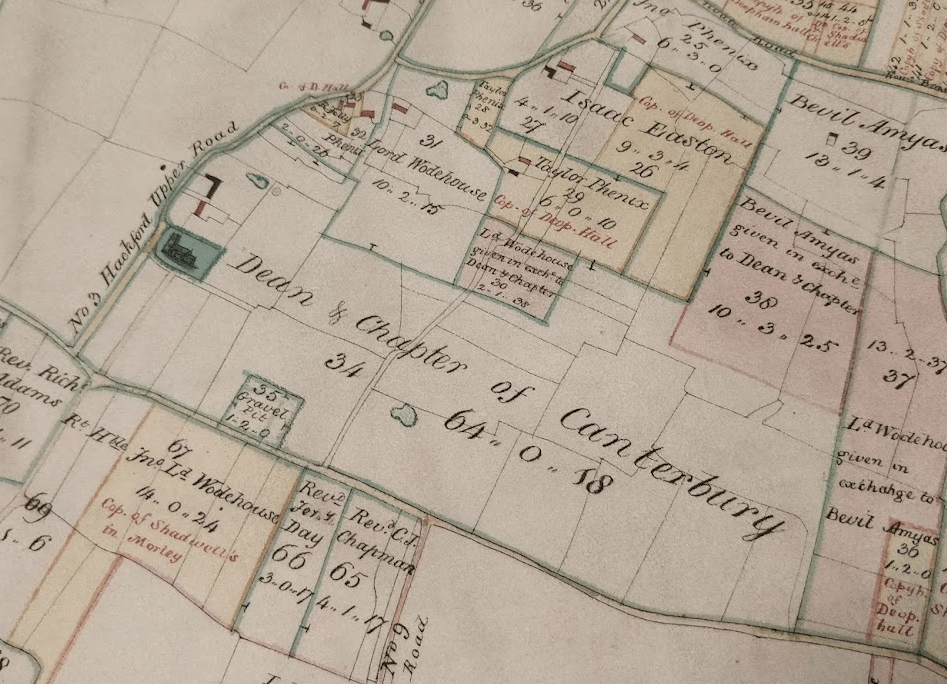 36
Jno Phenix
25
6 " 3 " 0
Road
Isaac Easton
4 " 1 " 10
27
Cop. of Deop. Hall
9 " 3 " 4
26
Bevil Amyas
39
13 " 1 " 4
Taylor
Phenix
28
31
Lord Wodehouse
10 " 2 " 15
32
Phenix
2-0-26
Taylor Phenix
29
6 " 0 " 10
Cop. of Deop. Hall
Ld. Wodehouse
given in exche. to
Dean & Chapter
30
2-1-38
Bevil Amyas
given in exche
to Dean & Chapter
38
10 " 3 " 25
No 3 Hackford Upper Road
Dean & Chapter of Canterbury
34
64 " 0 " 18
35
Gravel
Pit
1-2-0
13-2-37
37
Ld Wodehou
given in
exchange to
Bevil Amyas
36
1-2-0
Copyh.
of
Deop.
hall
Revd. Rich
Adams
70
69
Rt. Hble Jno Ld Wodehouse
67
14 " 0 " 24
Cop. of Shadwell's
in Morley
Revd.
Jer. y.
Day
66
3-0-17
Revd. C.J.
Chapman
65
4-1-17
No 9
Road